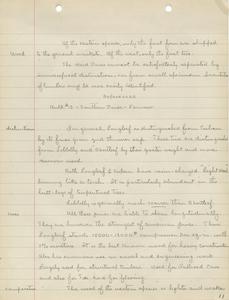 Of the western species, only the first four are shipped
to the general market. Of the west, only the first two.
Word The Hard Pines cannot be satisfactorily separated by
microscopical distinctions, and from small specimens
of lumber may be not easily identified.
Reference
Bull # 2 - Southern Pines -
distinction In general, Longleaf is distinguished from Cuban
by its finer grain and thinner sap. These two are distinguished
from Loblolly and Shortleaf by their greater weight and more
narrow wood.
Both Longleaf & Cuban have resin-charged "light wood"
burning like a torch. It is particularly abundant in the
butt-logs of turpentined trees.
Loblolly is generally much coarser than Shortleaf.
uses All these pines are liable to
They are however the strongest of American pines.
Longleaf stands
It is the best known wood for heavy construction.
Also has enormous use in naval and engineering work.
Largely used for structural timber. Used for railroad cars
and also for ties and for flooring.
comparative The wood of the western species is lighter and weaker
11